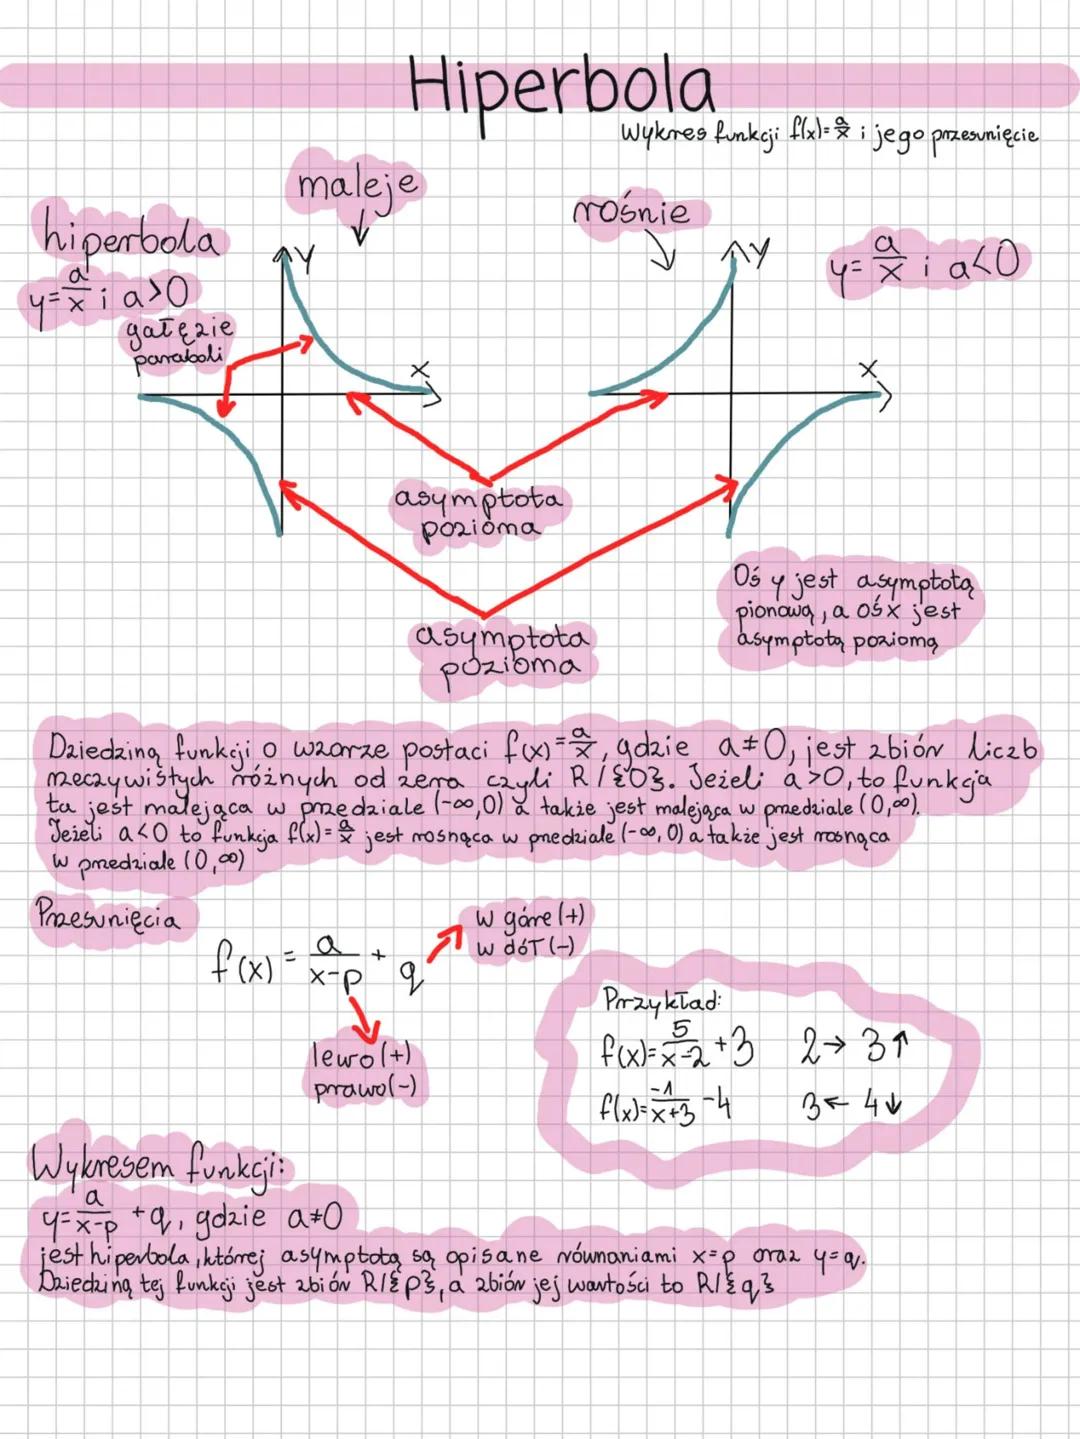 Hiperbola
Wykres funkcji f(x)=a/x i jego przesunięcie
maleje
rośnie
hiperbola
y=a/x i a>0
y=a/x i a<0
gałęzie
paraboli
Y
X
Y
X
asymptota
pozioma
asymptota
pozioma
Oś y jest asymptotą
pionową, a oś x jest
asymptotą poziomą
Dziedziną funkcji o wzorze postaci f(x)=a/x, gdzie a≠0, jest zbiór liczb
rzeczywistych różnych od zera czyli R/{0}. Jeżeli a>0, to funkcja
ta jest malejąca w przedziale (-∞,0) a także jest malejąca w przedziale (0,∞).
Jeżeli a<0 to funkcja f(x)=a/x jest rosnąca w przedziale (-∞,0) a także jest rosnąca
w przedziale (0,∞)
Przesunięcia
w górę (+)
w dół (-)
f(x) = a/(x-p) + q
lewo (+)
prawo (-)
Przykład:
f(x)=5/(x-2)+3 2→ 3↑
f(x)=-1/(x+3)-4 3← 4↓
Wykresem funkcji:
y=a/(x-p) +q, gdzie a≠0
jest hiperbola, której asymptotą są opisane równaniami x=p oraz y=q.
Dziedziną tej funkcji jest zbiór R/{p}, a zbiór jej wartości to R/{q}